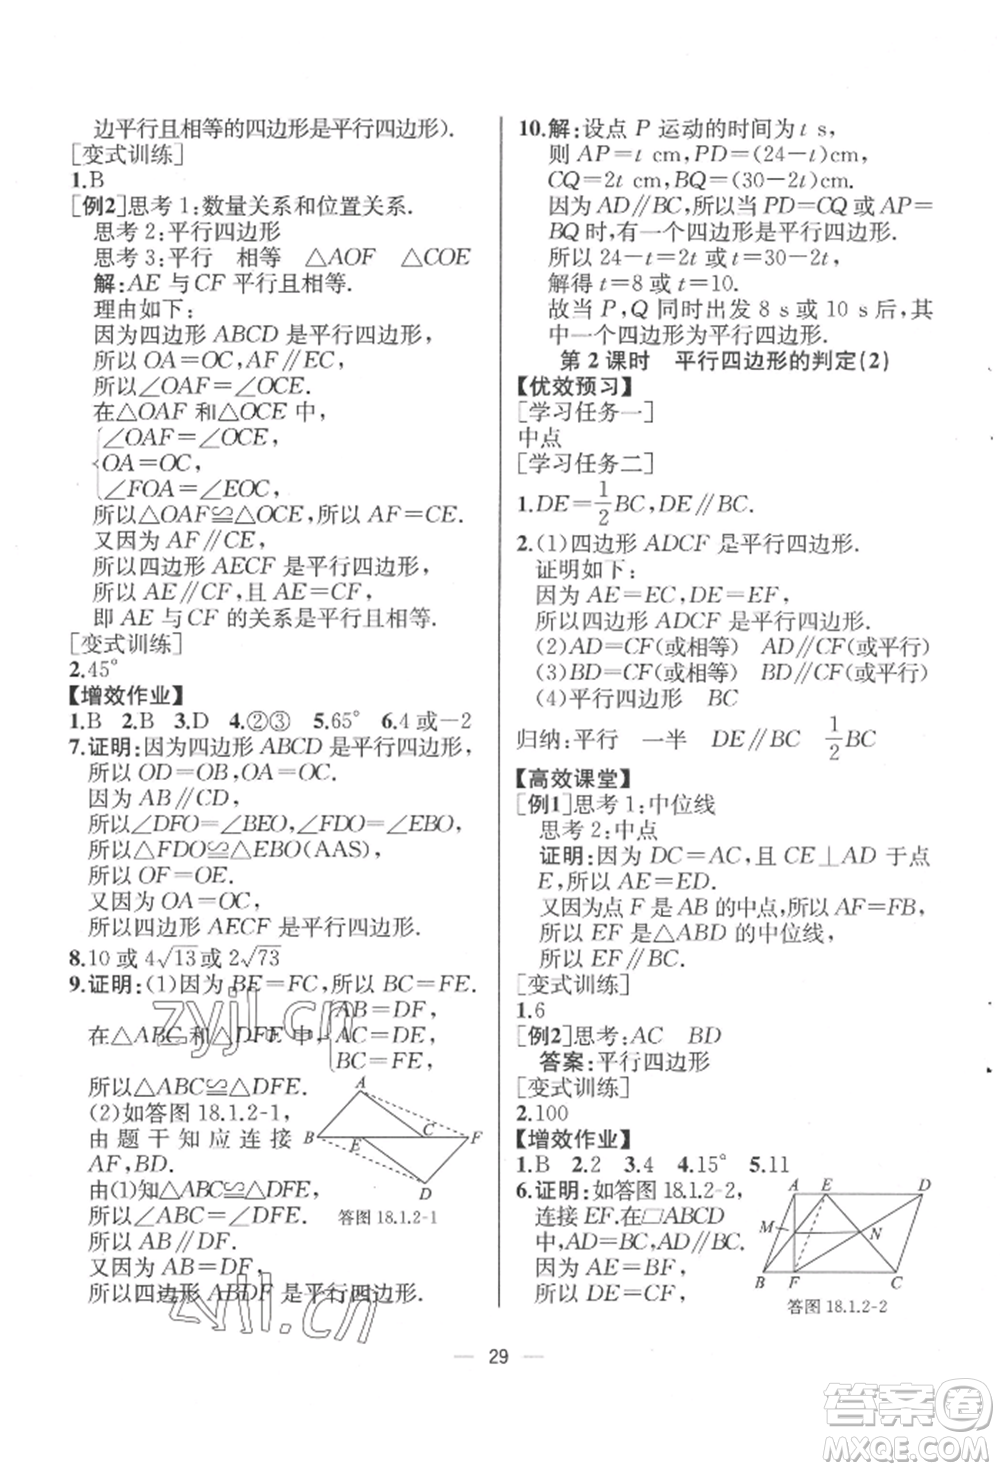 边平行且相等的四边形是平行四边形).
[变式训练]
1.B
[例2]思考1:数量关系和位置关系.
思考2:平行四边形
思考3:平行 相等 △AOF △COE
解:AE与CF平行且相等.
理由如下:
因为四边形ABCD是平行四边形,
所以OA=OC,AF∥EC.
所以∠OAF=∠OCE.
在△OAF和△OCE中,
∠OAF=∠OCE,
OA=OC,
∠FOA=∠EOC,
所以△OAF≌△OCE,所以AF=CE.
又因为AF∥CE,
所以四边形AECF是平行四边形,
所以AE∥CF,且AE=CF,
即AE与CF的关系是平行且相等.
[变式训练]
2.45°
【增效作业】
1.B 2.B 3.D 4.②③ 5.65° 6.4或-2
7.证明:因为四边形ABCD是平行四边形,
所以OD=OB,OA=OC.
因为AB∥CD,
所以∠DFO=∠BEO,∠FDO=∠EBO,
所以△FDO≌△EBO(AAS),
所以OF=OE.
又因为OA=OC,
所以四边形AECF是平行四边形.
8.10或4√13或2√73
9.证明:(1)因为BE=FC,所以BC=FE.
AB=DF,
在△ABC和△DFE中,AC=DE,
BC=FE,
所以△ABC≌△DFE.
(2)如答图18.1.2-1,
由题干知应连接
AF,BD.
由(1)知△ABC≌△DFE,
所以∠ABC=∠DFE,
所以AB∥DF.
又因为AB=DF,
所以四边形ABDF是平行四边形.
A
B E C F
D
答图18.1.2-1
10.解:设点P运动的时间为t s,
则AP=t cm,PD=(24-t)cm,
CQ=2t cm,BQ=(30-2t)cm.
因为AD∥BC,所以当PD=CQ或AP=
BQ时,有一个四边形是平行四边形.
所以24-t=2t或t=30-2t,
解得t=8或t=10.
故当P,Q同时出发8 s或10 s后,其
中一个四边形为平行四边形.
第2课时 平行四边形的判定(2)
【优效预习】
[学习任务一]
中点
[学习任务二]
1.DE=1/2BC,DE∥BC.
2.(1)四边形ADCF是平行四边形.
证明如下:
因为AE=EC,DE=EF,
所以四边形ADCF是平行四边形.
(2)AD=CF(或相等) AD∥CF(或平行)
(3)BD=CF(或相等) BD∥CF(或平行)
(4)平行四边形 BC
归纳:平行 一半 DE∥BC 1/2BC
【高效课堂】
[例1]思考1:中位线
思考2:中点
证明:因为DC=AC,且CE⊥AD于点
E,所以AE=ED.
又因为点F是AB的中点,所以AF=FB,
所以EF是△ABD的中位线,
所以EF∥BC.
[变式训练]
1.6
[例2]思考:AC BD
答案:平行四边形
[变式训练]
2.100
【增效作业】
1.B 2.2 3.4 4.15° 5.11
6.证明:如答图18.1.2-2,
连接EF.在▱ABCD
中,AD=BC,AD∥BC.
因为AE=BF,
所以DE=CF,
A E D
M N
B F C
答图18.1.2-2
zyjl.cn
zyjl.cn
29
答案圈
MXQE.COM